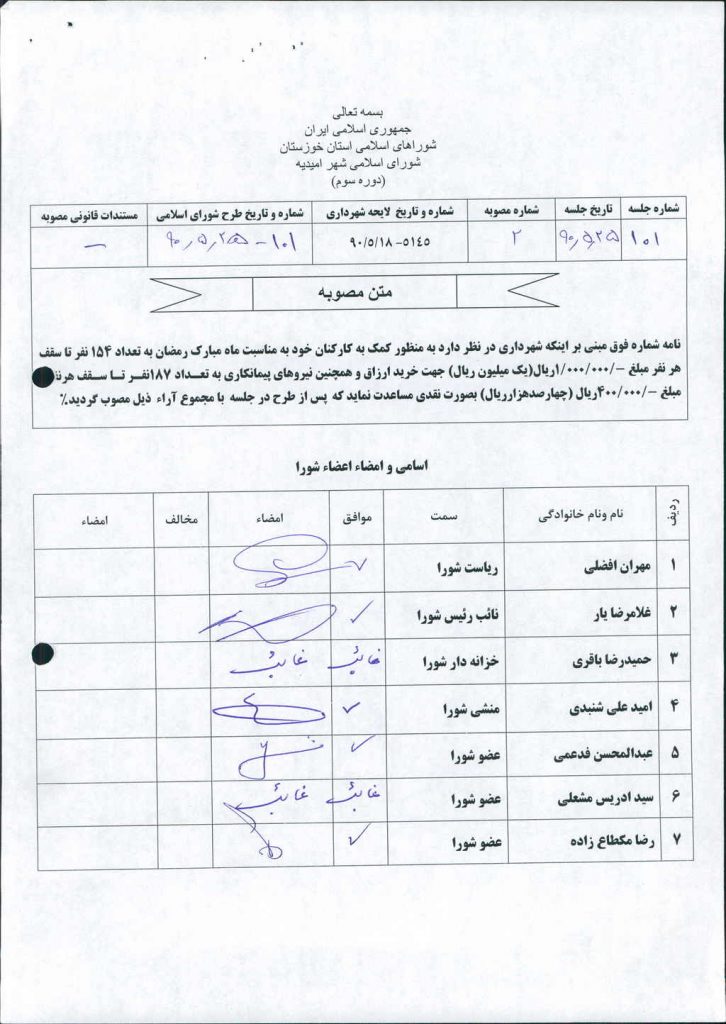 بسمه تعالی
جمهوری اسلامی ایران
شوراهای اسلامی استان خوزستان
شورای اسلامی شهر امیدیه
(دوره سوم)
شماره جلسه تاریخ جلسه شماره مصوبه شماره و تاریخ لایحه شهرداری شماره و تاریخ طرح شورای اسلامی مستندات قانونی مصوبه
۱۰۱ ۹۰٫۵٫۲۵ ۲ ۵۱۴۵-۹۰/۵/۱۸ ۱۰۱-۹۰٫۵٫۲۵ –
متن مصوبه
نامه شماره فوق مبنی بر اینکه شهرداری در نظر دارد به منظور کمک به کارکنان خود به مناسبت ماه مبارک رمضان به تعداد ۱۵۴ نفر تا سقف
هر نفر مبلغ -/۱/۰۰۰/۰۰۰ریال(یک میلیون ریال) جهت خرید ارزاق و همچنین نیروهای پیمانکاری به تعداد ۱۸۷نفر تا سقف هرنفر
مبلغ -/۴۰۰/۰۰۰ریال (چهارصدهزارریال) بصورت نقدی مساعدت نماید که پس از طرح در جلسه با مجموع آراء ذیل مصوب گردید.٪
اسامی و امضاء اعضاء شورا
ردیف نام ونام خانوادگی سمت موافق امضاء مخالف امضاء
۱ مهران افضلی ریاست شورا ✓
۲ غلامرضا یار نائب رئیس شورا ✓
۳ حمیدرضا باقری خزانه دار شورا غائب غائب
۴ امید علی شنبدی منشی شورا ✓
۵ عبدالمحسن فدعمی عضو شورا ✓
۶ سید ادریس مشعلی عضو شورا غائب غائب
۷ رضا مکطاع زاده عضو شورا ✓